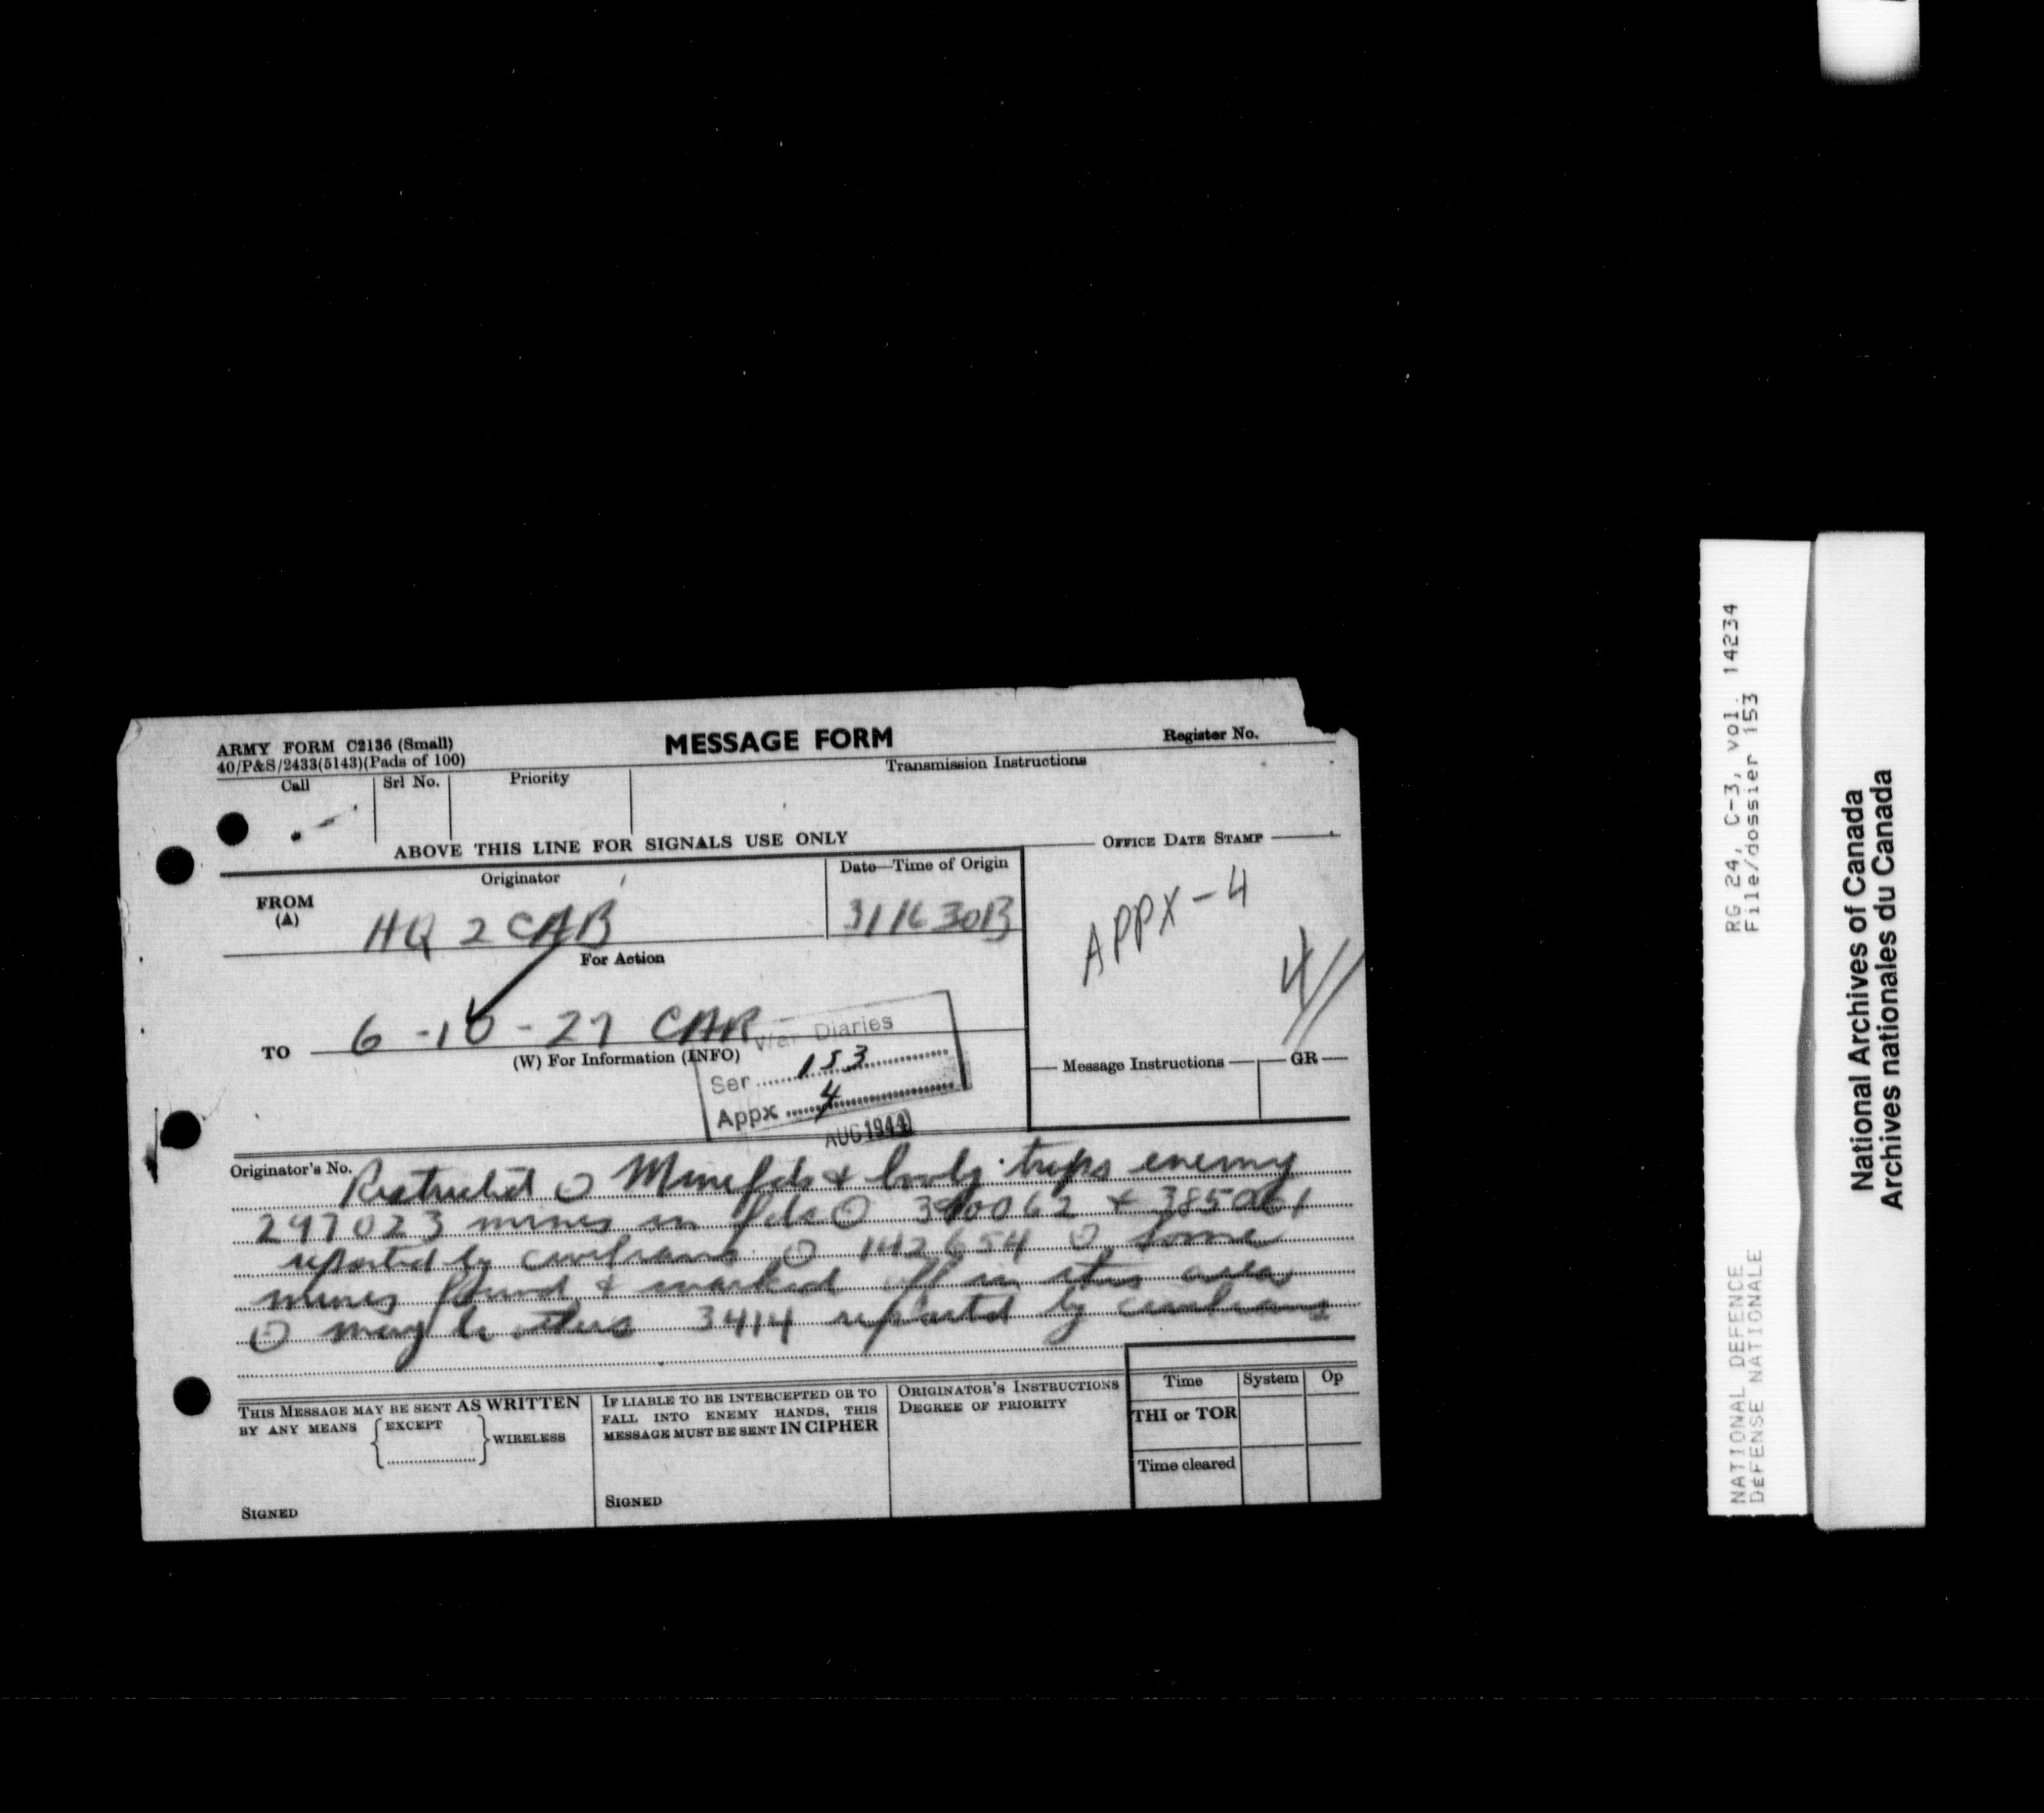 ARMY FORM C2136 (Small)
40/P&S/2433(5143)(Pads of 100)
MESSAGE FORM
Register No.
Call
Srl No.
Priority
Transmission Instructions
ABOVE THIS LINE FOR SIGNALS USE ONLY
OFFICE DATE STAMP
FROM
(A)
Originator
Date—Time of Origin
HQ 2 CAB
311630B
APPX-4
4//
For Action
TO
6 -10 - 27 CAR
(W) For Information (INFO)
War Diaries
Ser 153
Appx 4
AUG 1944
Message Instructions
GR
Originator's No.
Restricted O Minefds & booby traps enemy
297023 mines in fds O 390062 + 385061
reported by civilians O 142654 O some
mines found & marked off in this area
O may be others 3414 reported by civilians
THIS MESSAGE MAY BE SENT AS WRITTEN
BY ANY MEANS
EXCEPT
WIRELESS
SIGNED
IF LIABLE TO BE INTERCEPTED OR TO
FALL INTO ENEMY HANDS, THIS
MESSAGE MUST BE SENT IN CIPHER
SIGNED
ORIGINATOR'S INSTRUCTIONS
DEGREE OF PRIORITY
Time
System
Op
THI or TOR
Time cleared
NATIONAL DEFENCE RG 24, C-3, vol. 14234
DéFENSE NATIONALE File/dossier 153
National Archives of Canada
Archives nationales du Canada